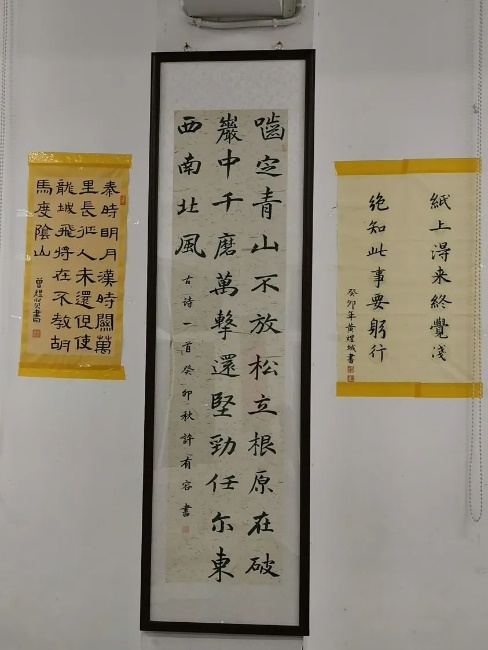 紙上得来終覺淺
絶知此事要躬行
癸卯年黄煌城書
嚙定青山不放松立根原在破
巖中千磨萬擊還堅勁任尔東
西南北風
古诗一首癸卯秋許有容書
秦時明月漢時關萬
里長征人未還但使
龍城飛將在不教胡
馬度陰山